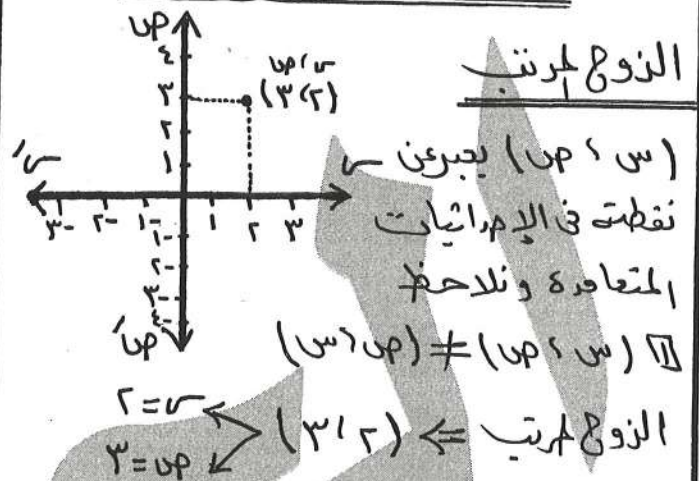 الزوج المرتب
(س ، ص) يعبر عن
نقطة فى الإحداثيات
المتعامدة ونلاحظ
١ (س ، ص) ≠ (ص ، س)
الزوج المرتب ⇐ (٢ ، ٣)
س = ٢
ص = ٣
ص
٤
٣
٢
١
س ، ص
(٢ ، ٣)
س
س/
٣- ٢- ١- ١ ٢ ٣
١-
٢-
٣-
٤-
ص/